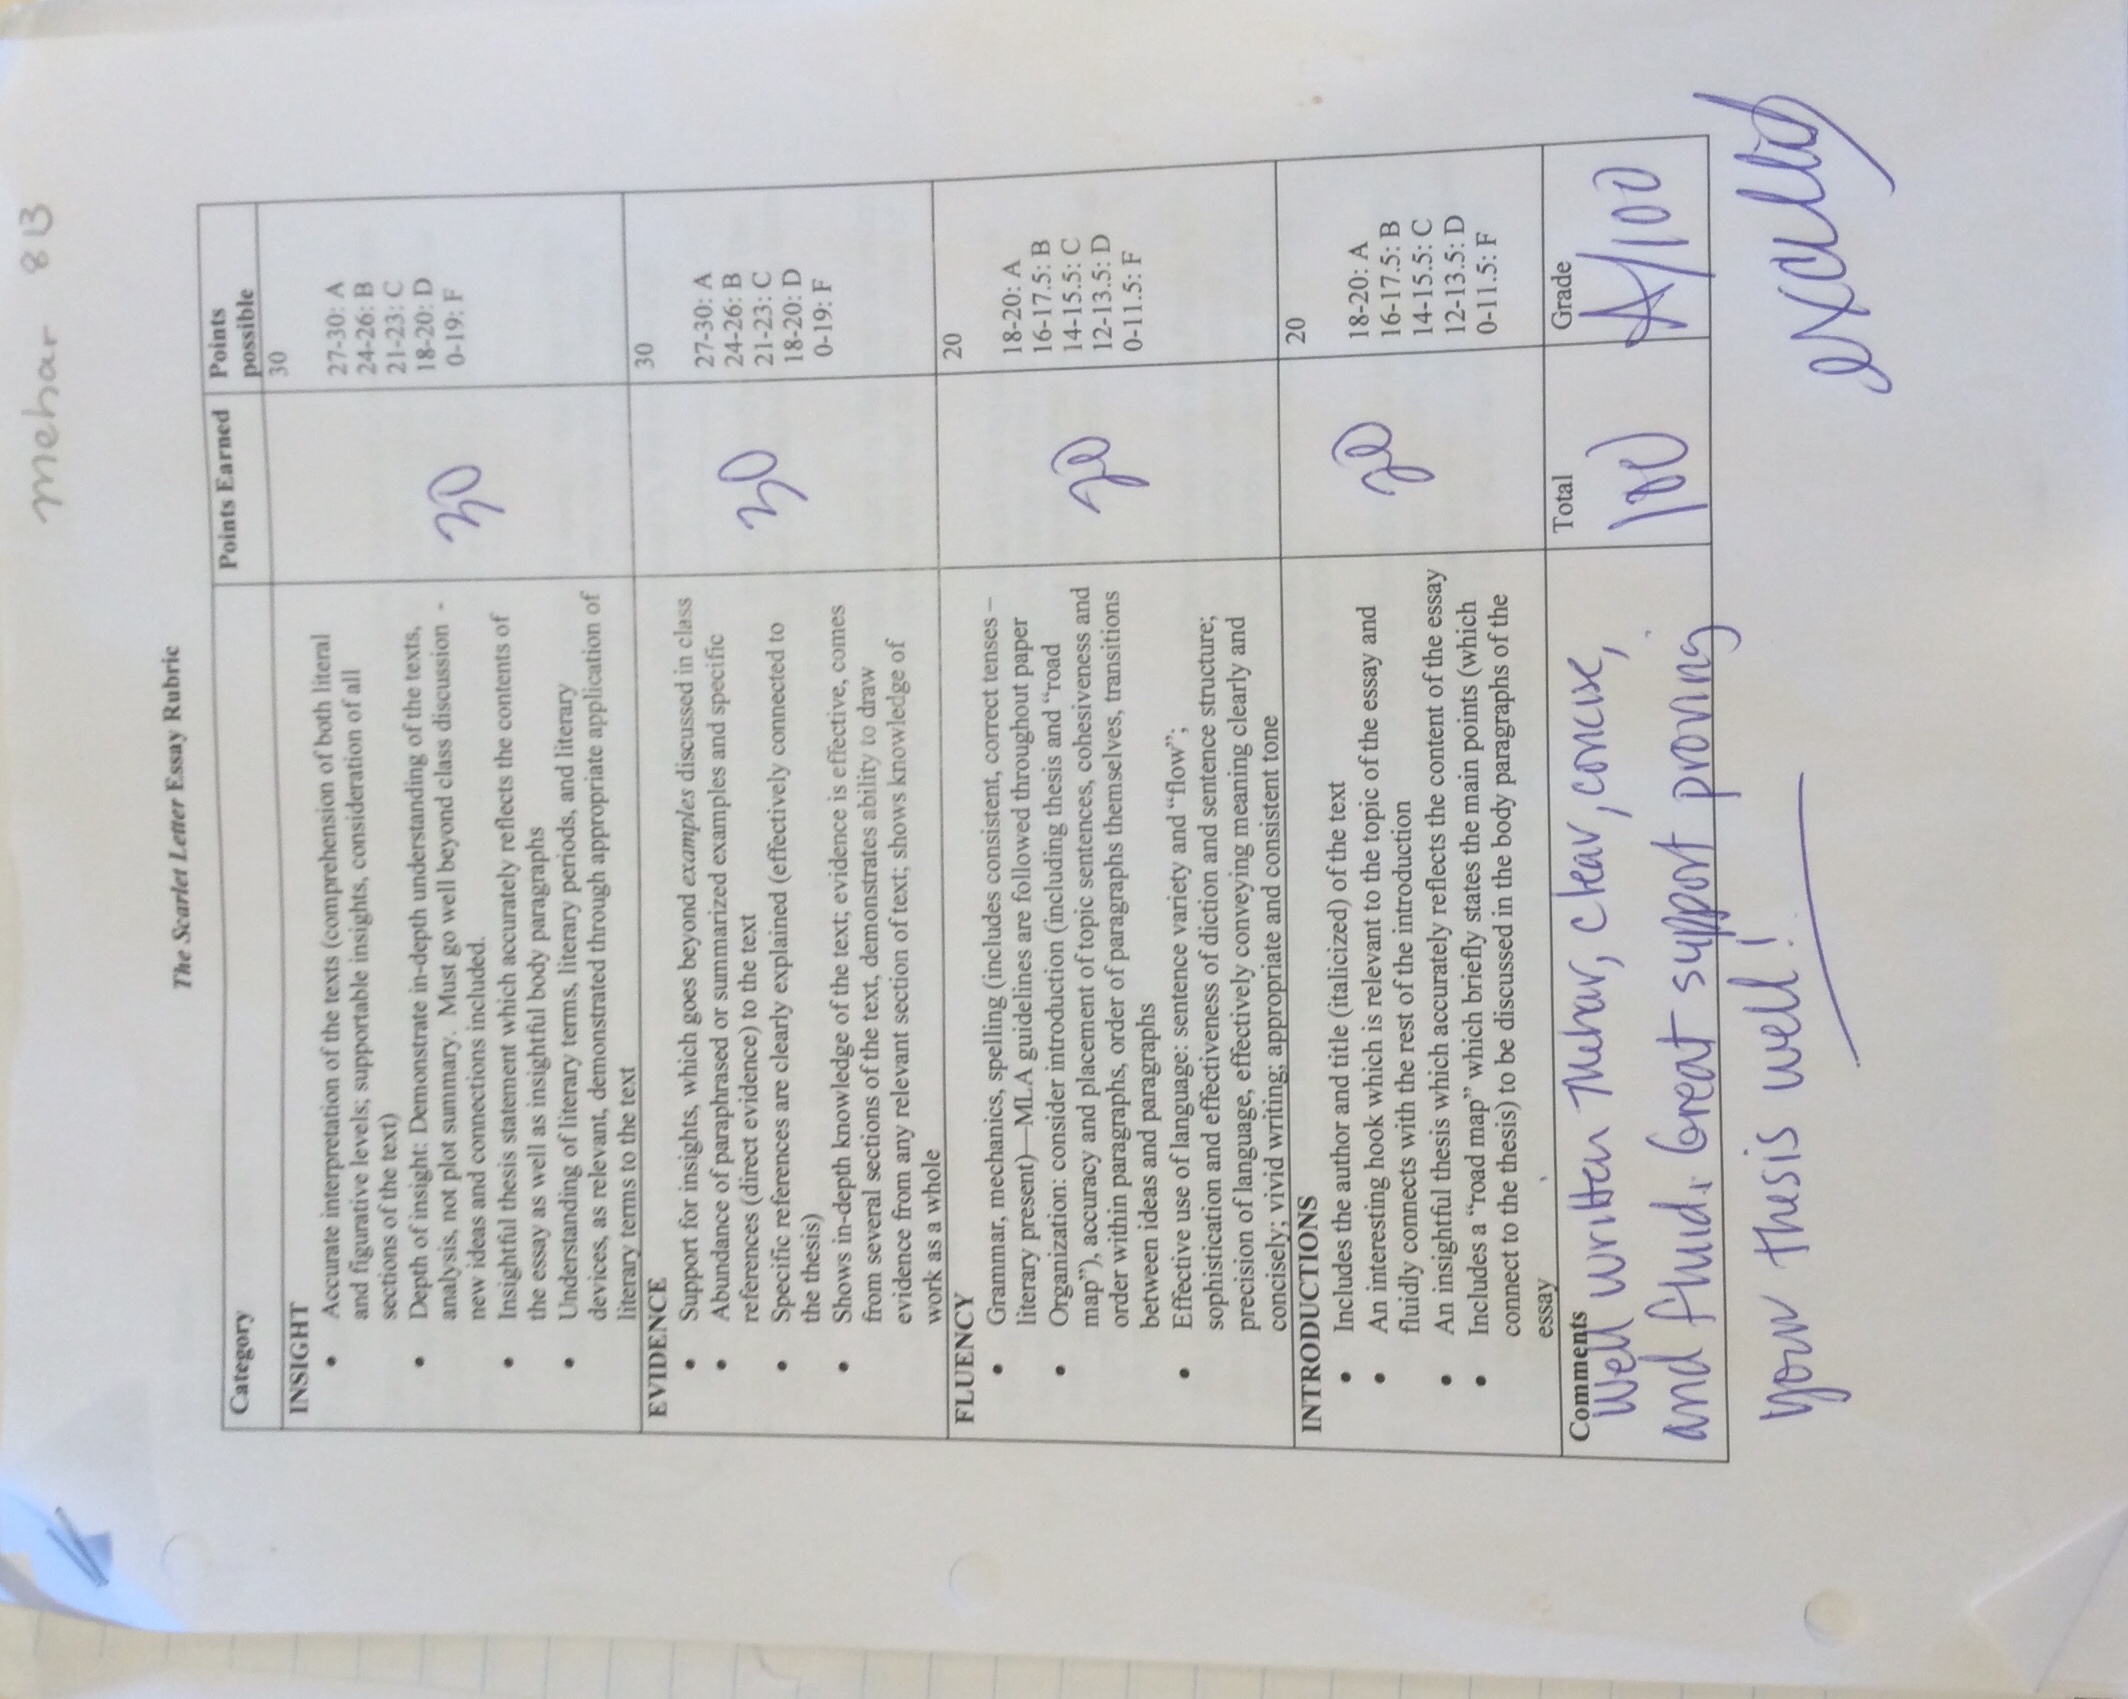 mehar 8B
The Scarlet Letter Essay Rubric
Category
Points Earned
Points
possible
INSIGHT
• Accurate interpretation of the texts (comprehension of both literal
and figurative levels; supportable insights, consideration of all
sections of the text)
• Depth of insight: Demonstrate in-depth understanding of the texts,
analysis, not plot summary. Must go well beyond class discussion -
new ideas and connections included.
• Insightful thesis statement which accurately reflects the contents of
the essay as well as insightful body paragraphs
• Understanding of literary terms, literary periods, and literary
devices, as relevant, demonstrated through appropriate application of
literary terms to the text
30
30
27-30: A
24-26: B
21-23: C
18-20: D
0-19: F
EVIDENCE
• Support for insights, which goes beyond examples discussed in class
• Abundance of paraphrased or summarized examples and specific
references (direct evidence) to the text
• Specific references are clearly explained (effectively connected to
the thesis)
• Shows in-depth knowledge of the text; evidence is effective, comes
from several sections of the text, demonstrates ability to draw
evidence from any relevant section of text; shows knowledge of
work as a whole
30
30
27-30: A
24-26: B
21-23: C
18-20: D
0-19: F
FLUENCY
• Grammar, mechanics, spelling (includes consistent, correct tenses –
literary present)—MLA guidelines are followed throughout paper
• Organization: consider introduction (including thesis and "road
map"), accuracy and placement of topic sentences, cohesiveness and
order within paragraphs, order of paragraphs themselves, transitions
between ideas and paragraphs
• Effective use of language: sentence variety and "flow";
sophistication and effectiveness of diction and sentence structure;
precision of language, effectively conveying meaning clearly and
concisely; vivid writing; appropriate and consistent tone
20
20
18-20: A
16-17.5: B
14-15.5: C
12-13.5: D
0-11.5: F
INTRODUCTIONS
• Includes the author and title (italicized) of the text
• An interesting hook which is relevant to the topic of the essay and
fluidly connects with the rest of the introduction
• An insightful thesis which accurately reflects the content of the essay
• Includes a "road map" which briefly states the main points (which
connect to the thesis) to be discussed in the body paragraphs of the
essay
20
20
18-20: A
16-17.5: B
14-15.5: C
12-13.5: D
0-11.5: F
Comments
Total
Grade
Well written Mehar, clear, concise,
and fluid. Great support proving
your thesis well!
100
A/100